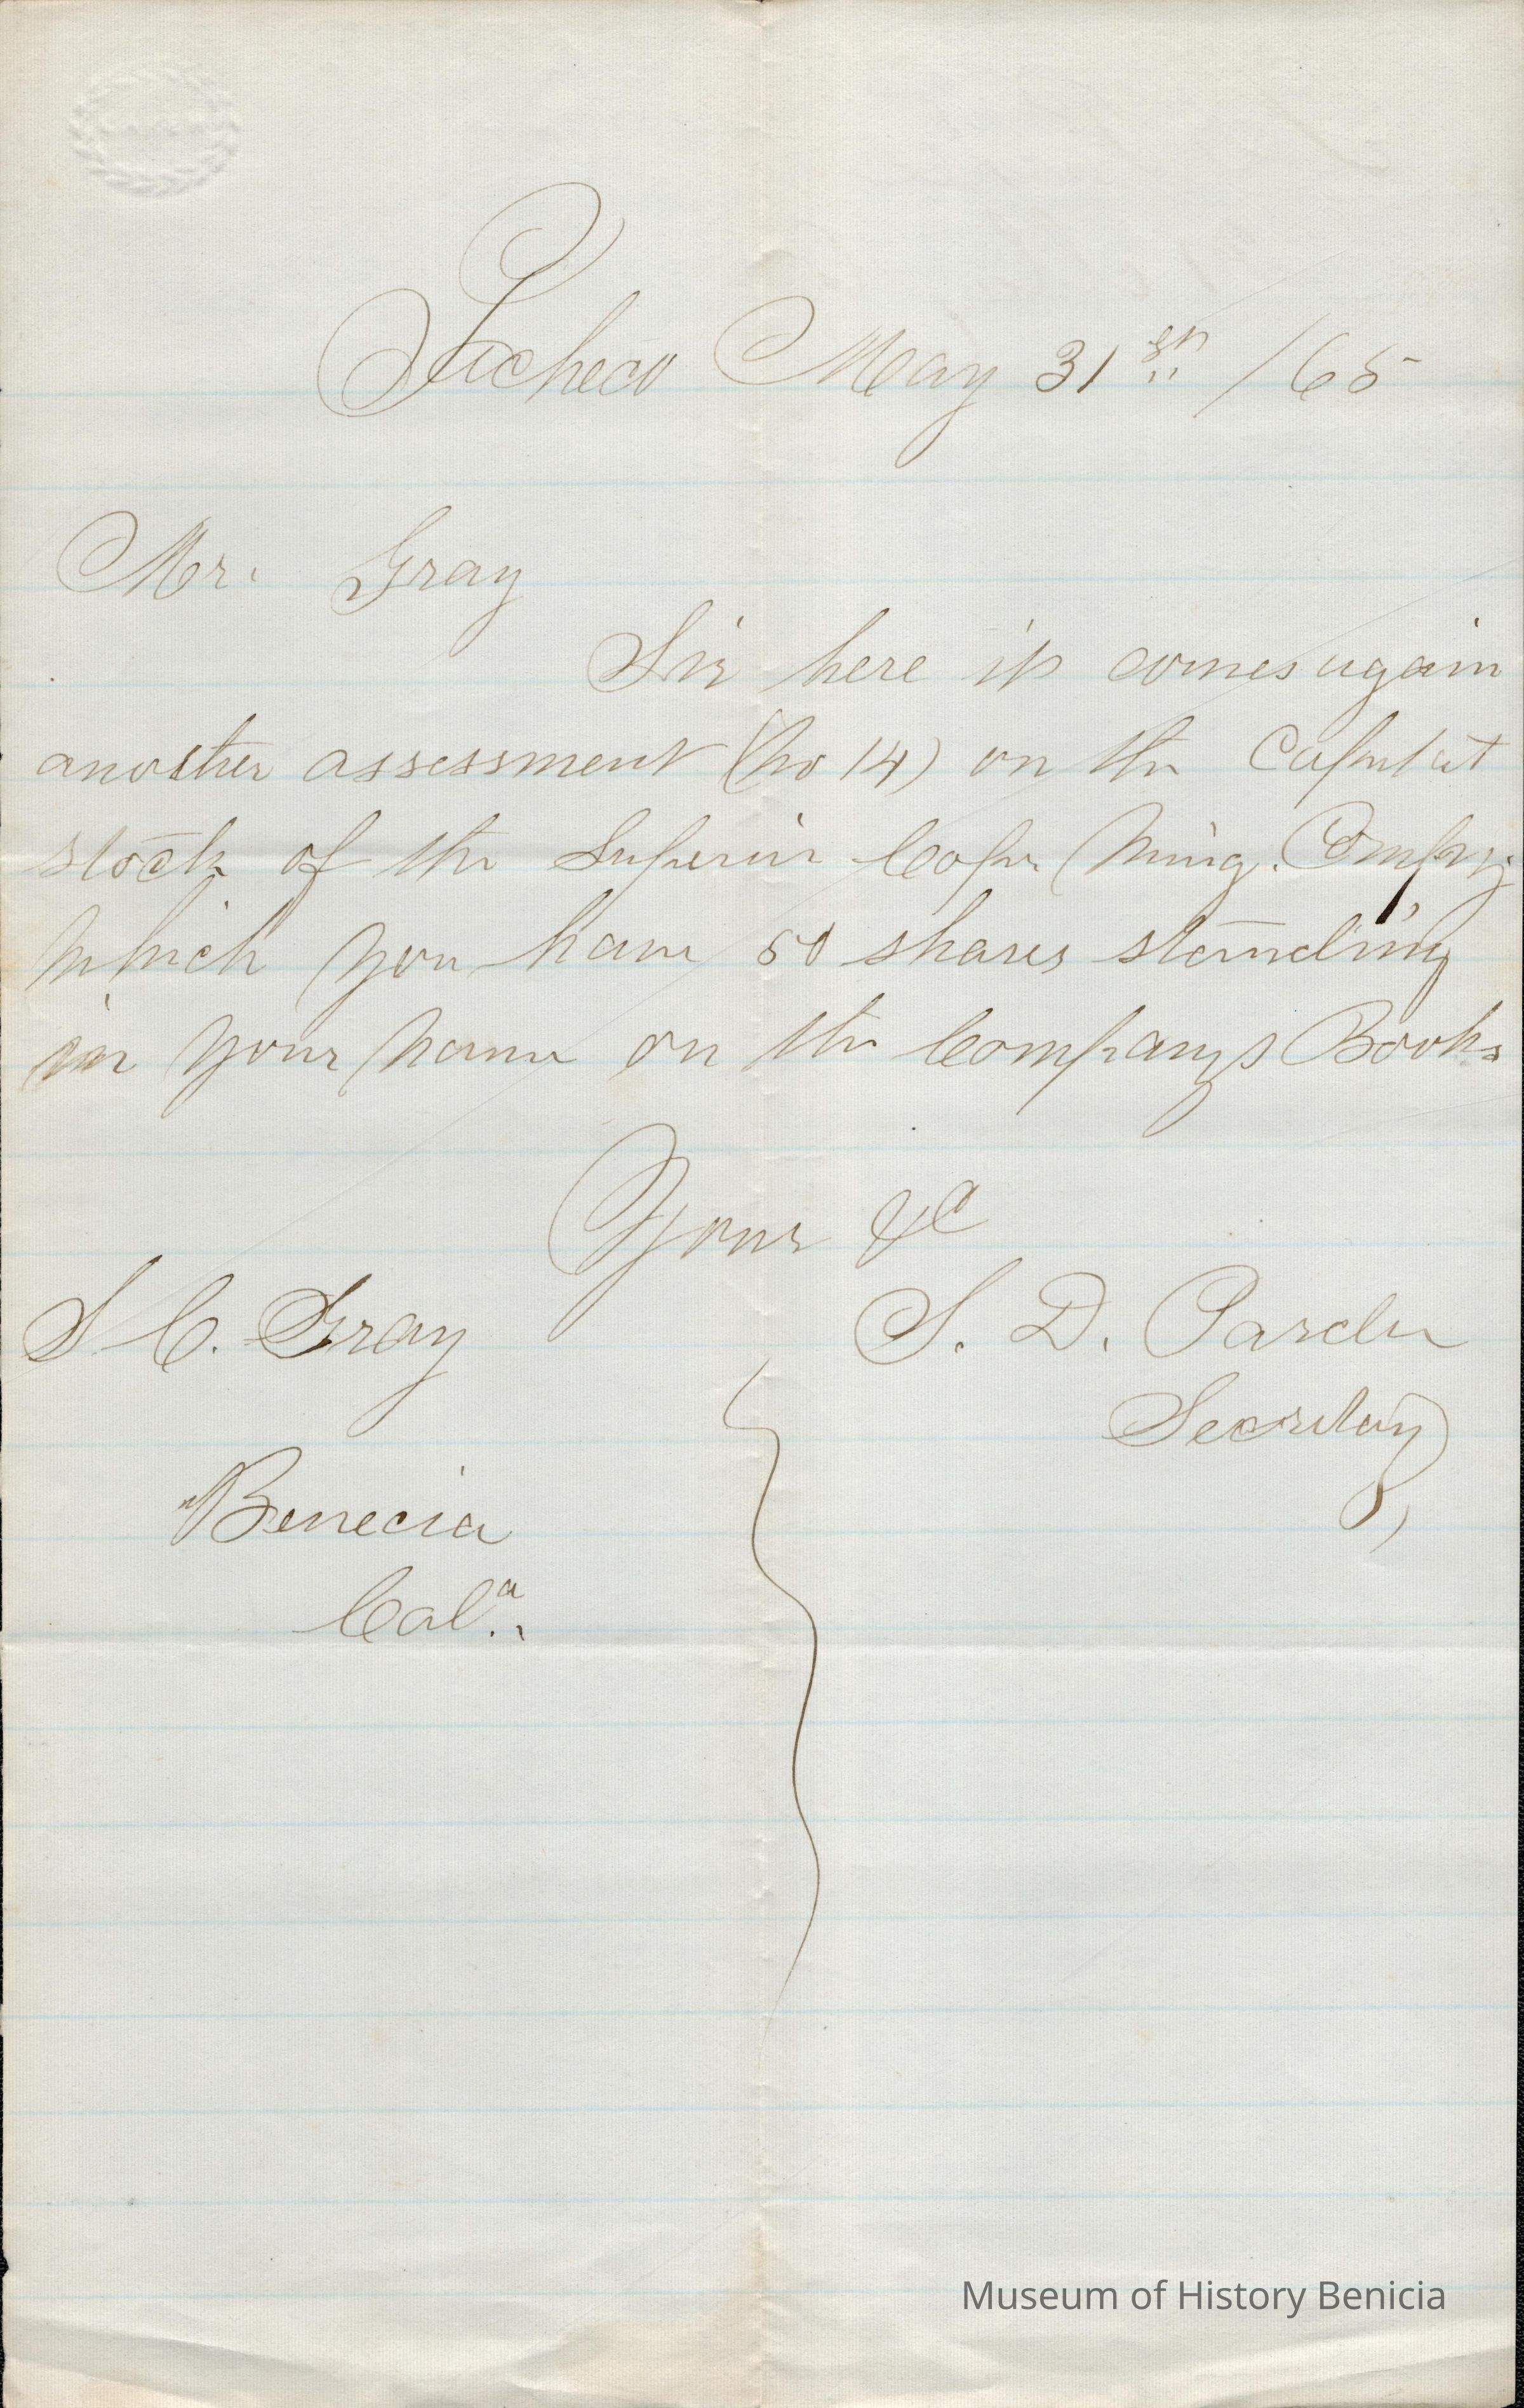 Pacheco May 31st /65
Mr. Gray
Sir here it comes again
another assessment (No 14) on the Capital
stock of the Superior Coper Ming. Company
which you have 50 shares standing
in your name on the Companys Books
Yours &c
S. D. Pardee
Secretary
S C. Gray
Benecia
Cala.
Museum of History Benicia